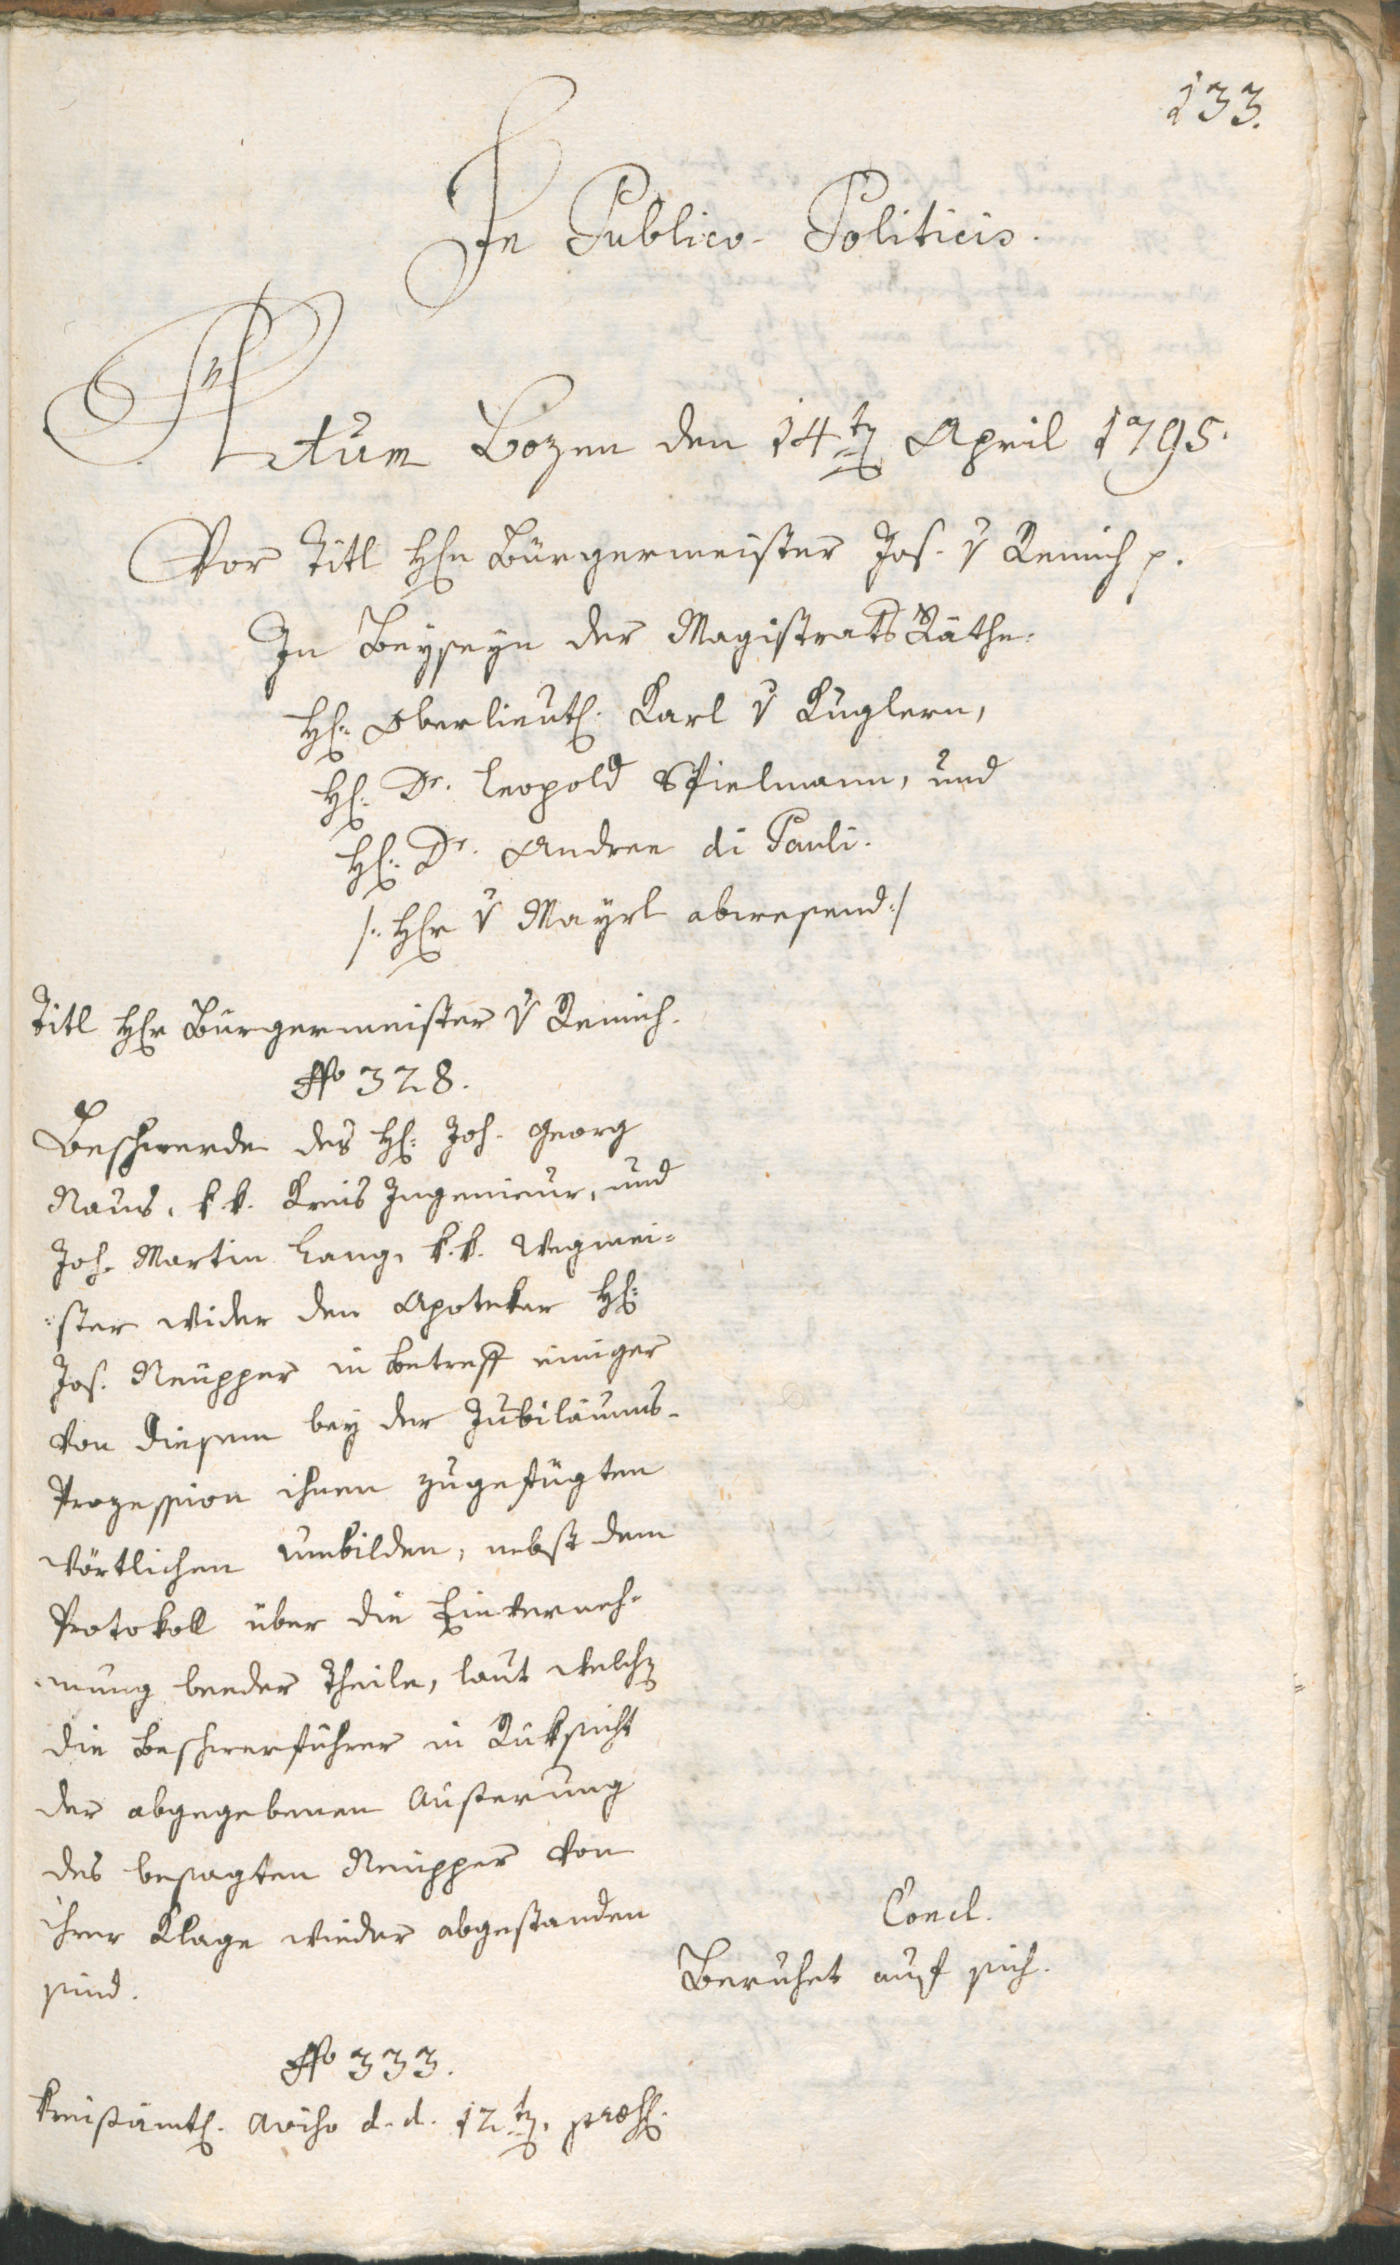 133.
In Publico-Politicis.
Actum Bozen den 14ten April 1795.
Vor Titl Hrn Bürgermeister Jos. v Remich p.
In Beyseyn der MagistratsRäthe.
Hr. Oberlieut. Karl v Kuglern,
Hr. Dr. Leopold Spielmann, und
Hr. Dr. Andree di Pauli.
/: Hr v Mayrl abwesend :/
Titl Hr Bürgermeister v Remich.
No 328.
Beschwerde des Hr. Joh. Georg
Naus, k k. Kreis Ingenieur, und
Joh. Martin Lang, k. k. Wegmei=
=ster wider den Apoteker Hr.
Jos. Neupper in betreff einiger
von diesem bey der Jubiläums-
Prozession ihnen zugefügten
wörtlichen Unbilden, nebst dem
Protokoll über die Einverneh=
=mung beeder Theile, laut welchen
die Beschwerführer in Rüksicht
der abgegebenen Äusserung
des besagten Neupper von
ihrer Klage wieder abgestanden
sind.
Concl.
Beruhet auf sich.
No 333.
Kreisämtl. Aviso d. d. 12ten, praes.